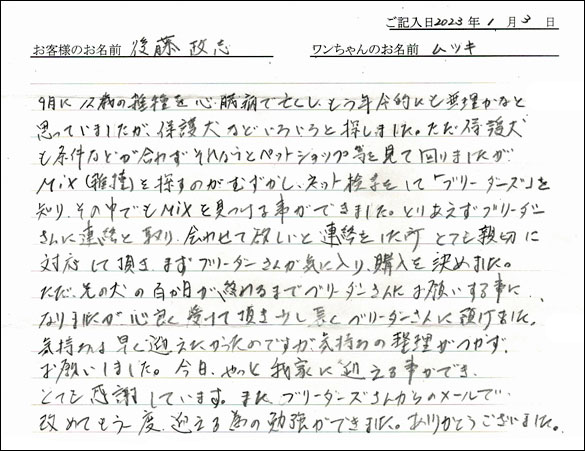 ご記入日2023年 1 月 3 日
お客様のお名前 後藤 政志 ワンちゃんのお名前 ムツキ
9月に12歳の雑種を心臓病で亡くし、もう年令的にも無理かなと
思っていましたが、保護犬などいろいろと探しました。ただ保護犬
も条件などが合わずそれならとペットショップ等を見て回りましたが
MIX(雑種)を探すのがむずかし、ネット検索をして「ブリーダーズ」を
知り、その中でもMIXを見つける事ができました。とりあえずブリーダー
さんに連絡を取り、会わせて欲しいと連絡をした所とても親切に
対応して頂き、まずブリーダーさんが気に入り、購入を決めました。
ただ、先の犬の百か日が、終わるまでブリーダーさんにお願いする事に
なりましたが心良く受けて頂き少し長くブリーダーさんに預けました。
気持ちは早く迎えたかったのですが気持ちの整理がつかず、
お願いしました。今日、やっと我家に迎える事ができ、
とても感謝しています。また、ブリーダーズさんからのメールで、
改めてもう一度、迎える為の勉強ができました。ありがとうございました。